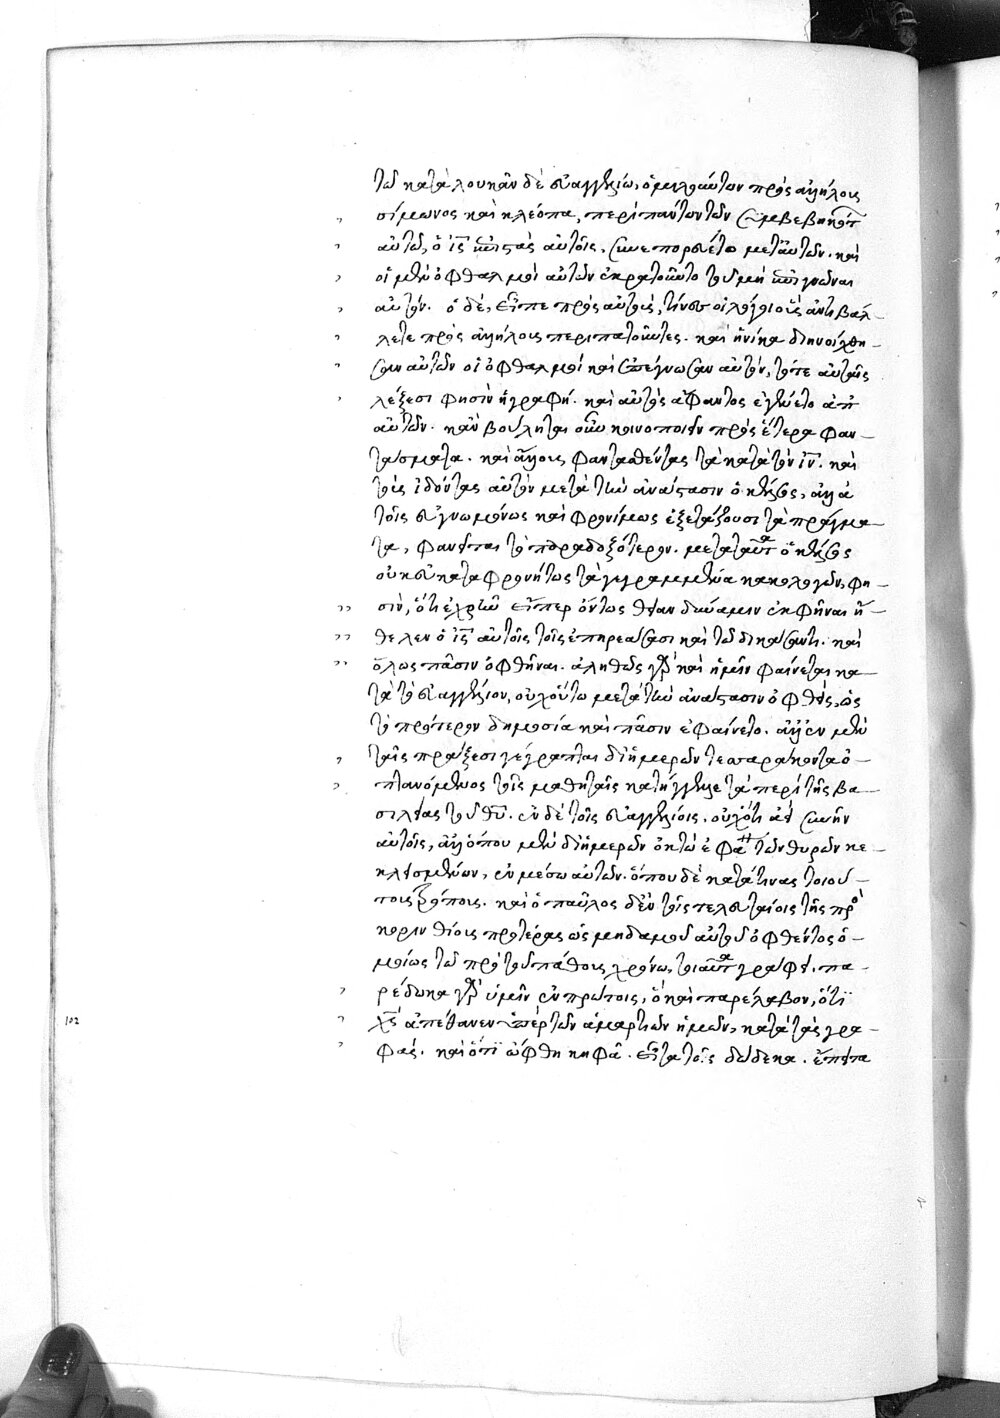 τῶ κατὰ λουκᾶν δὲ εὐαγγελίω, ὁμιλούντων πρὸς ἀλλήλους
σίμωνος καὶ κλεόπα, περὶ πάντων τῶν συμβεβηκότ
αὐτῶ, ὁ ἰς ἐπιστὰς αὐτοῖς, συνεπορεύετο μετ' αὐτῶν. καὶ
οἱ μὲν ὀφθαλμοὶ αὐτῶν ἐκρατοῦντο τοῦ μὴ ἐπιγνῶναι
αὐτόν. ὁ δὲ, εἶπε πρὸς αὐτοὺς, τίνες οἱ λόγοι οὓς ἀντιβάλ-
λετε πρὸς ἀλλήλους περιπατοῦντες. καὶ ἡνίκα διηνοίχθη-
σαν αὐτῶν οἱ ὀφθαλμοὶ καὶ ἐπέγνωσαν αὐτὸν, τότε αὐταῖς
λέξεσί φησιν ἡ γραφή. καὶ αὐτὸς ἄφαντος ἐγένετο ἀπ'
αὐτῶν. κἂν βούληται οὖν κοινοποιεῖν πρὸς ἕτερα φαν-
τάσματα. καὶ ἄλλους φαντασθέντας τὰ κατὰ τὸν ιν. καὶ
τοὺς ἰδόντας αὐτὸν μετὰ τὴν ἀνάστασιν ὁ κέλσος, ἀλλὰ
τοῖς εὐγνωμόνως καὶ φρονίμως ἐξετάζουσι τὰ πράγμα-
τα, φανεῖται τὸ παραδοξότερον. μετὰ ταῦτα ὁ κέλσος
οὐκ εὐκαταφρονήτως τὰ γεγραμμένα κακολογῶν, φη-
σὶν, ὅτι ἐχρῆν εἴπερ ὄντως θείαν δύναμιν ἐκφῆναι ἤ-
θελεν ὁ ἰς αὐτοῖς τοῖς ἐπηρεάσασι καὶ τῶ δικάσαντι. καὶ
ὅλως πᾶσιν ὀφθῆναι. ἀληθῶς γὰρ καὶ ἡμῖν φαίνεται κα-
τὰ τὸ εὐαγγέλιον, οὐχ οὕτω μετὰ τὴν ἀνάστασιν ὀφθεὶς, ὡς
τὸ πρότερον δημοσία καὶ πᾶσιν ἐφαίνετο. ἀλλ' ἐν μὲν
ταῖς πράξεσι γέγραπται δι' ἡμερῶν τεσσαράκοντα ὀ-
πτανόμενος τοῖς μαθηταῖς κατήγγελλε τὰ περὶ τῆς βα-
σιλείας τοῦ θυ. ἐν δὲ τοῖς εὐαγγελίοις, οὐχ ὅτι ἀεὶ συνῆν
αὐτοῖς, ἀλλ' ὅπου μὲν δι' ἡμερῶν ὀκτὼ ἐφάνη τῶν θυρῶν κε-
κλεισμένων, ἐν μέσω αὐτῶν. ὅπου δὲ κατά τινας τοιού-
τους τρόπους. καὶ ὁ παῦλος δ' ἐν τοῖς τελευταίοις τῆς προ
κορινθίους προτέρας ὡς μηδαμοῦ αὐτοῦ ὀφθέντος ὁ-
μοίως τῶ πρὸ τοῦ πάθους χρόνω, τοιαῦτα γράφει. πα-
ρέδωκα γὰρ ὑμῖν ἐν πρώτοις, ὃ καὶ παρέλαβον, ὅτι
χς ἀπέθανεν ὑπὲρ τῶν ἁμαρτιῶν ἡμῶν, κατὰ τὰς γρα-
φάς. καὶ ὅτι ὤφθη κηφᾶ. εἶτα τοῖς δώδεκα. ἔπειτα
102